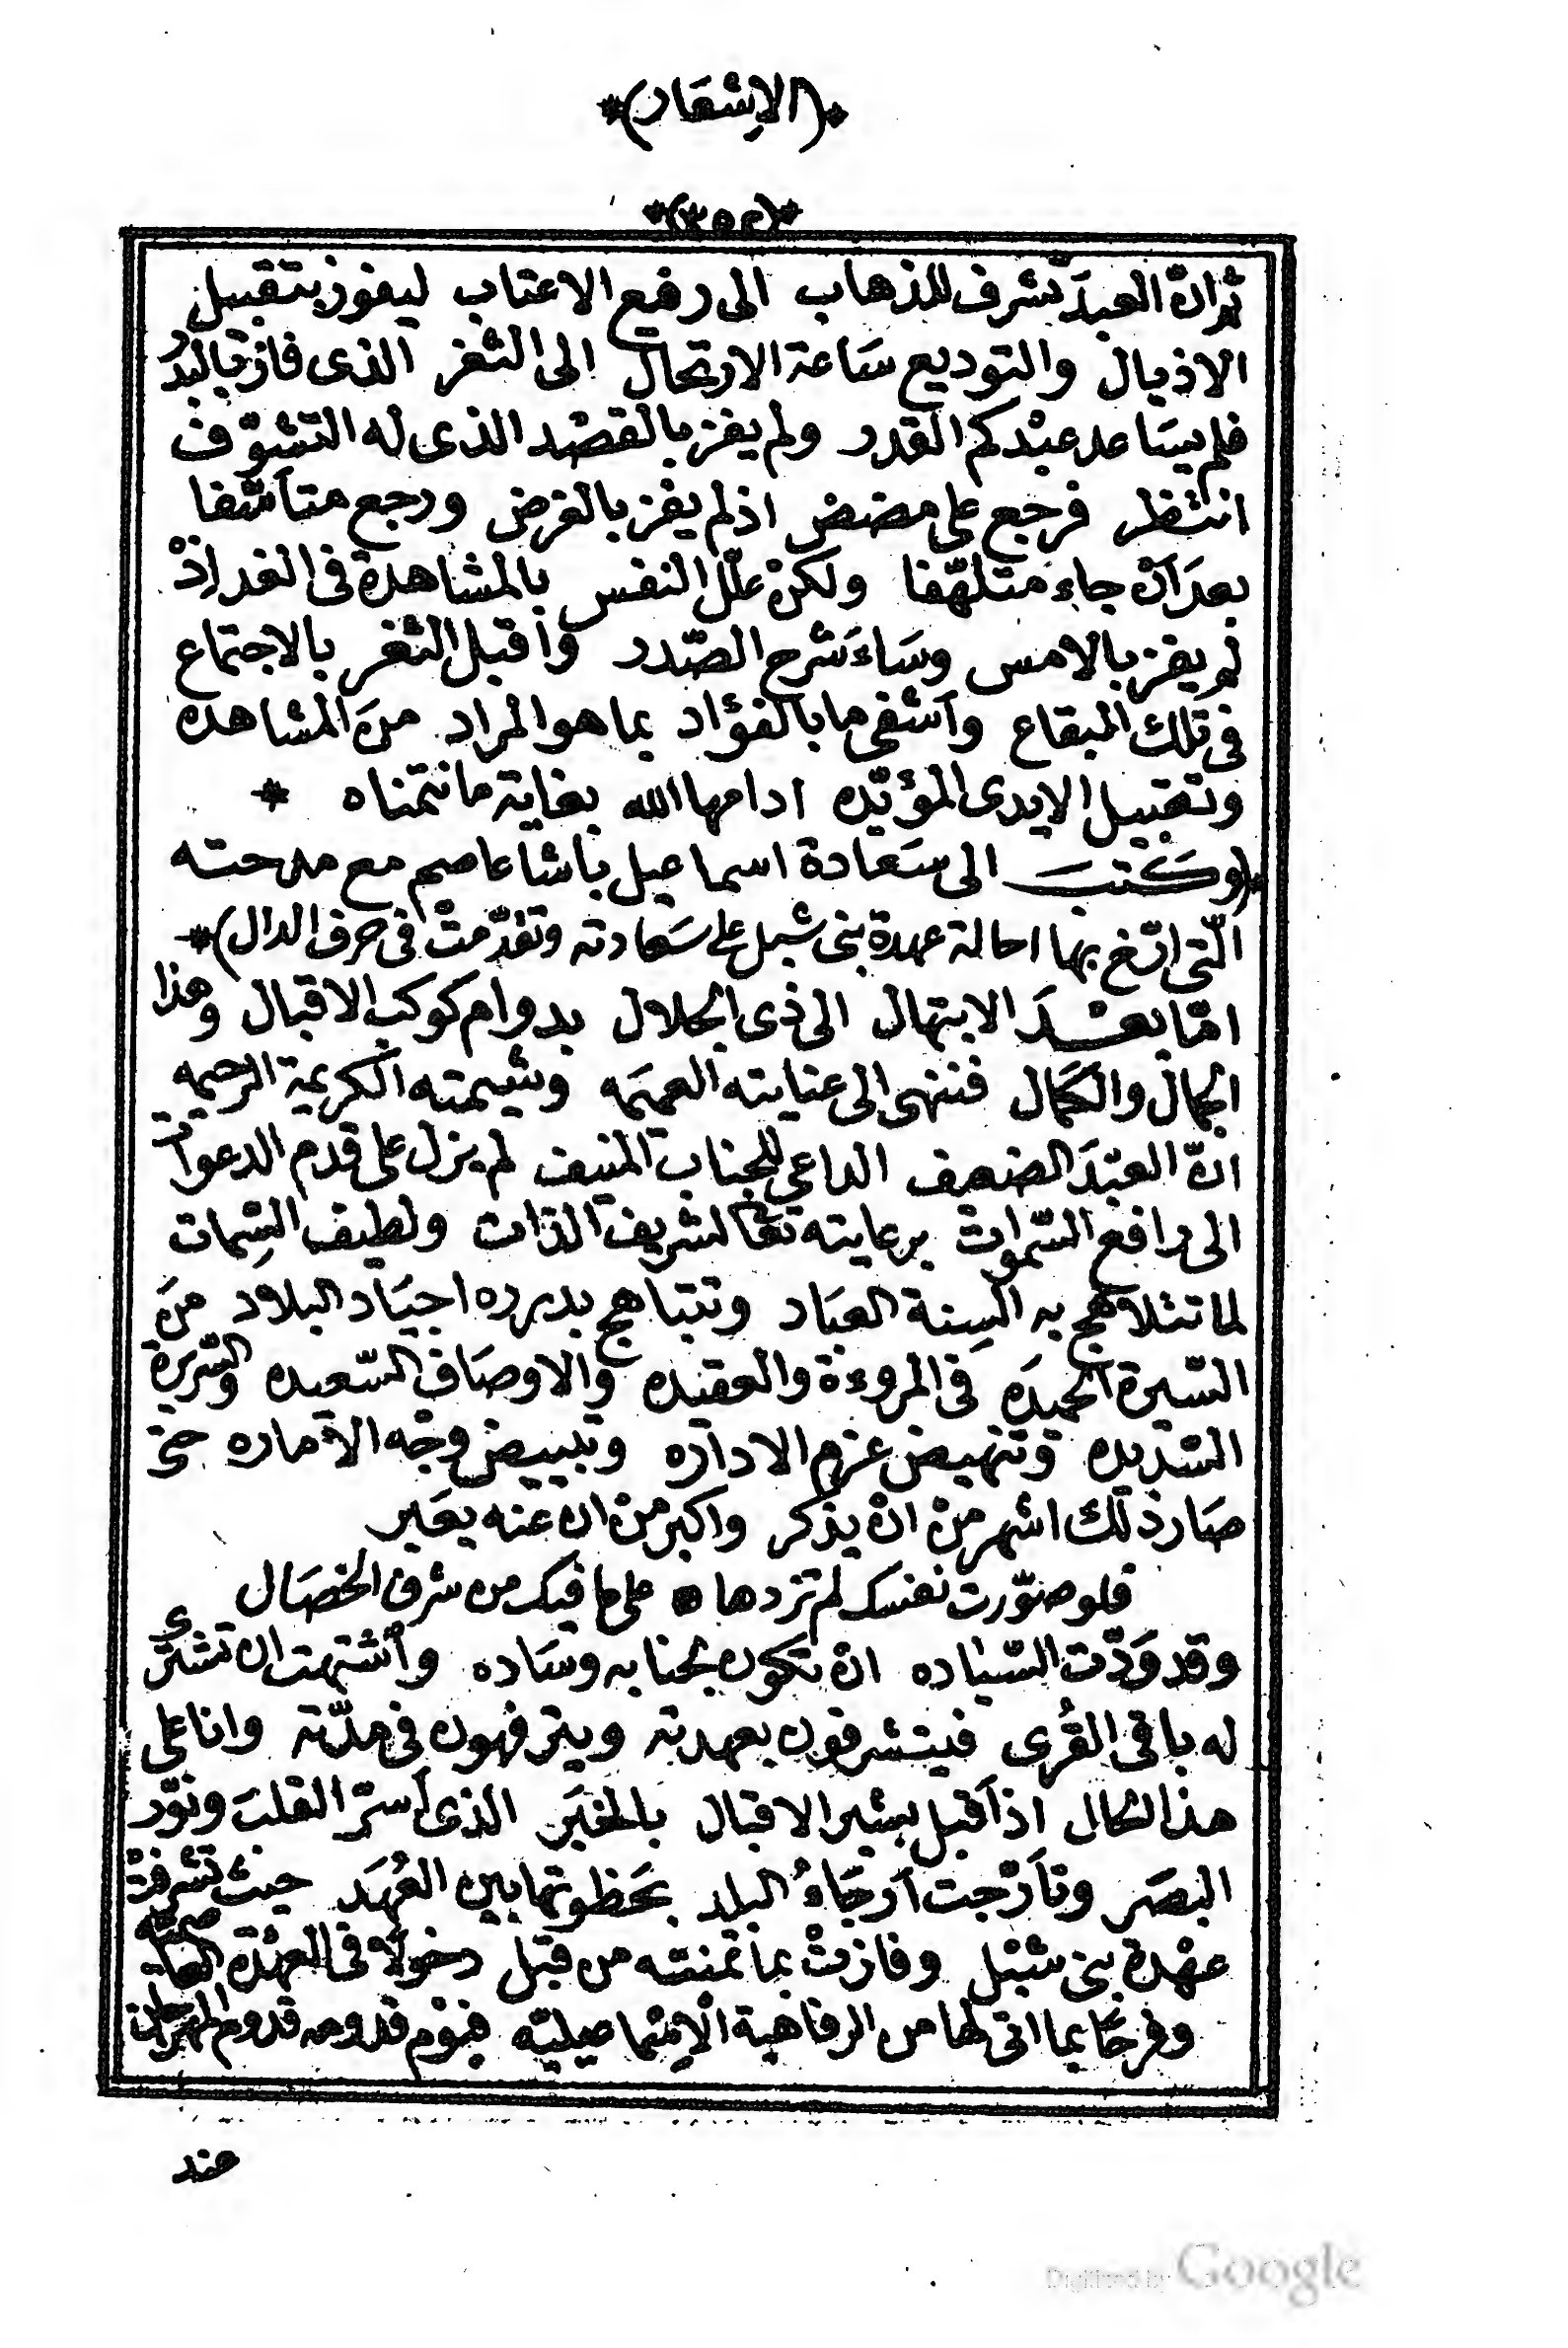 *(الاِشْعَار)*
*(٣٥٢)*
ثم انّ العبدَ تشرف للذهاب الى رفيع الاعتاب ليفوز بتقبيل
الاذيال والتوديع سَاعة الارتحال الى الثغر الذى فاز بالبدُ
فلم يسَاعد عبْدكم القدر ولم يفز بالقصْد الذى له التشوّف
انتظر فرجع على مضض اذ لم يفز بالغرض ورجع متأسّفا
بعدَ أنْ جاءَ متلهّفا ولكنْ علّل النفس بالمشاهدة فى الغد اِذْ
لم يفز بالامس وسَاءَ شرح الصّدر وأقبل الثغر بالاجتماع
فى تلك البقاع وأشفى ما بالفؤاد بما هو المراد منَ المشاهده
وتقبيل الايدى المؤيّده ادامها الله بغاية ما نتمناه *
*(وكتبَ الى سَعادة اسماعيل باشا عاصم مع مدحته
الّتى ارّخ بها احالة عهدة بنى شبل على سَعادته وتقدّمتْ فى حرف الدال)*
امّا بعْدَ الابتهال الى ذى الجلال بدوام كوكب الاقبال وهذا
الجمال والكمال فننهى الى عنايته العميمَه وشيمته الكريمة الرحيمه
انّ العبْدَ الضعيف الداعى للجناب المنيف لم يزل على قدم الدعوات
الى رافع السّموات برعايته تعالى لشريف الذات ولطيف السِّمات
لما تتلاهج به ألسِنة العبَاد وتتباهج بدرره اجيَاد البلاد منَ
السّيرة الحميدَه فى المروءة والعقيده والاوصَاف السّعيده والسّريرة
السّديده وتنهيض عزم الاداره وتبييض وجْه الأماره حتى
صَار ذلك اشهر منْ انْ يذكر واكبر منْ ان عنه يعَبر
فلو صوّرت نفسك لم تزدها * على ما فيك من شرف الخصَال
وقد وَدّت السّيَاده انْ تكون بجنابه وسَاده وأشتهت ان تشترى
له باقى القُرى فيتشرفون بعهدته ويترفهون فى مدّته وانا على
هذا الحال اذ أقبل بشير الاقبال بالخبَر الذى أسرّ القلبَ ونوّر
البصَر وتأرّجت أرجَاءُ البلد بحَظوتها بين العُهَد حيث تشرفتْ
عهْدة بنى شبْل وفازتْ بما تمنته من قبل دخولاً فى العهْدة العاصميّه
وفرحًا بما اتى لها من الرفاهية الاِسْماعيليّه فيوْم قدومه قدوم المهرجان
عند
Digitized by Google